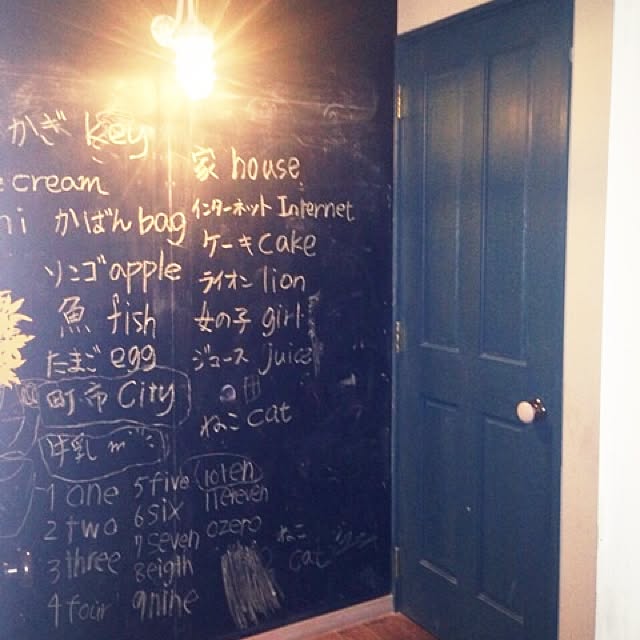 かぎ key
cream
かばん bag
リンゴ apple
魚 fish
たまご egg
町 市 City
牛乳 m
1 one
2 two
3 three
4 four
5 five
6 six
7 seven
8 eigth
9 nine
10 ten
11 eleven
0 zero
家 house
インターネット Internet
ケーキ cake
ライオン lion
女の子 girl
ジュース juice
ねこ cat
ねこ
cat